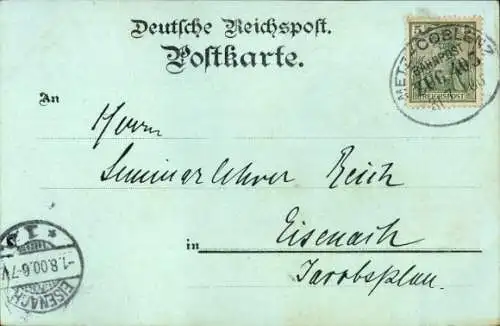 Deutsche Reichspost.
Postkarte.
5
METZ COBLENZ
BAHNPOST
ZUG
REICHSPOST
An
Herrn
Seminarlehrer Reich
in Eisenach
Jacobsplan.
EISENACH
-1.8.00.6-7V.